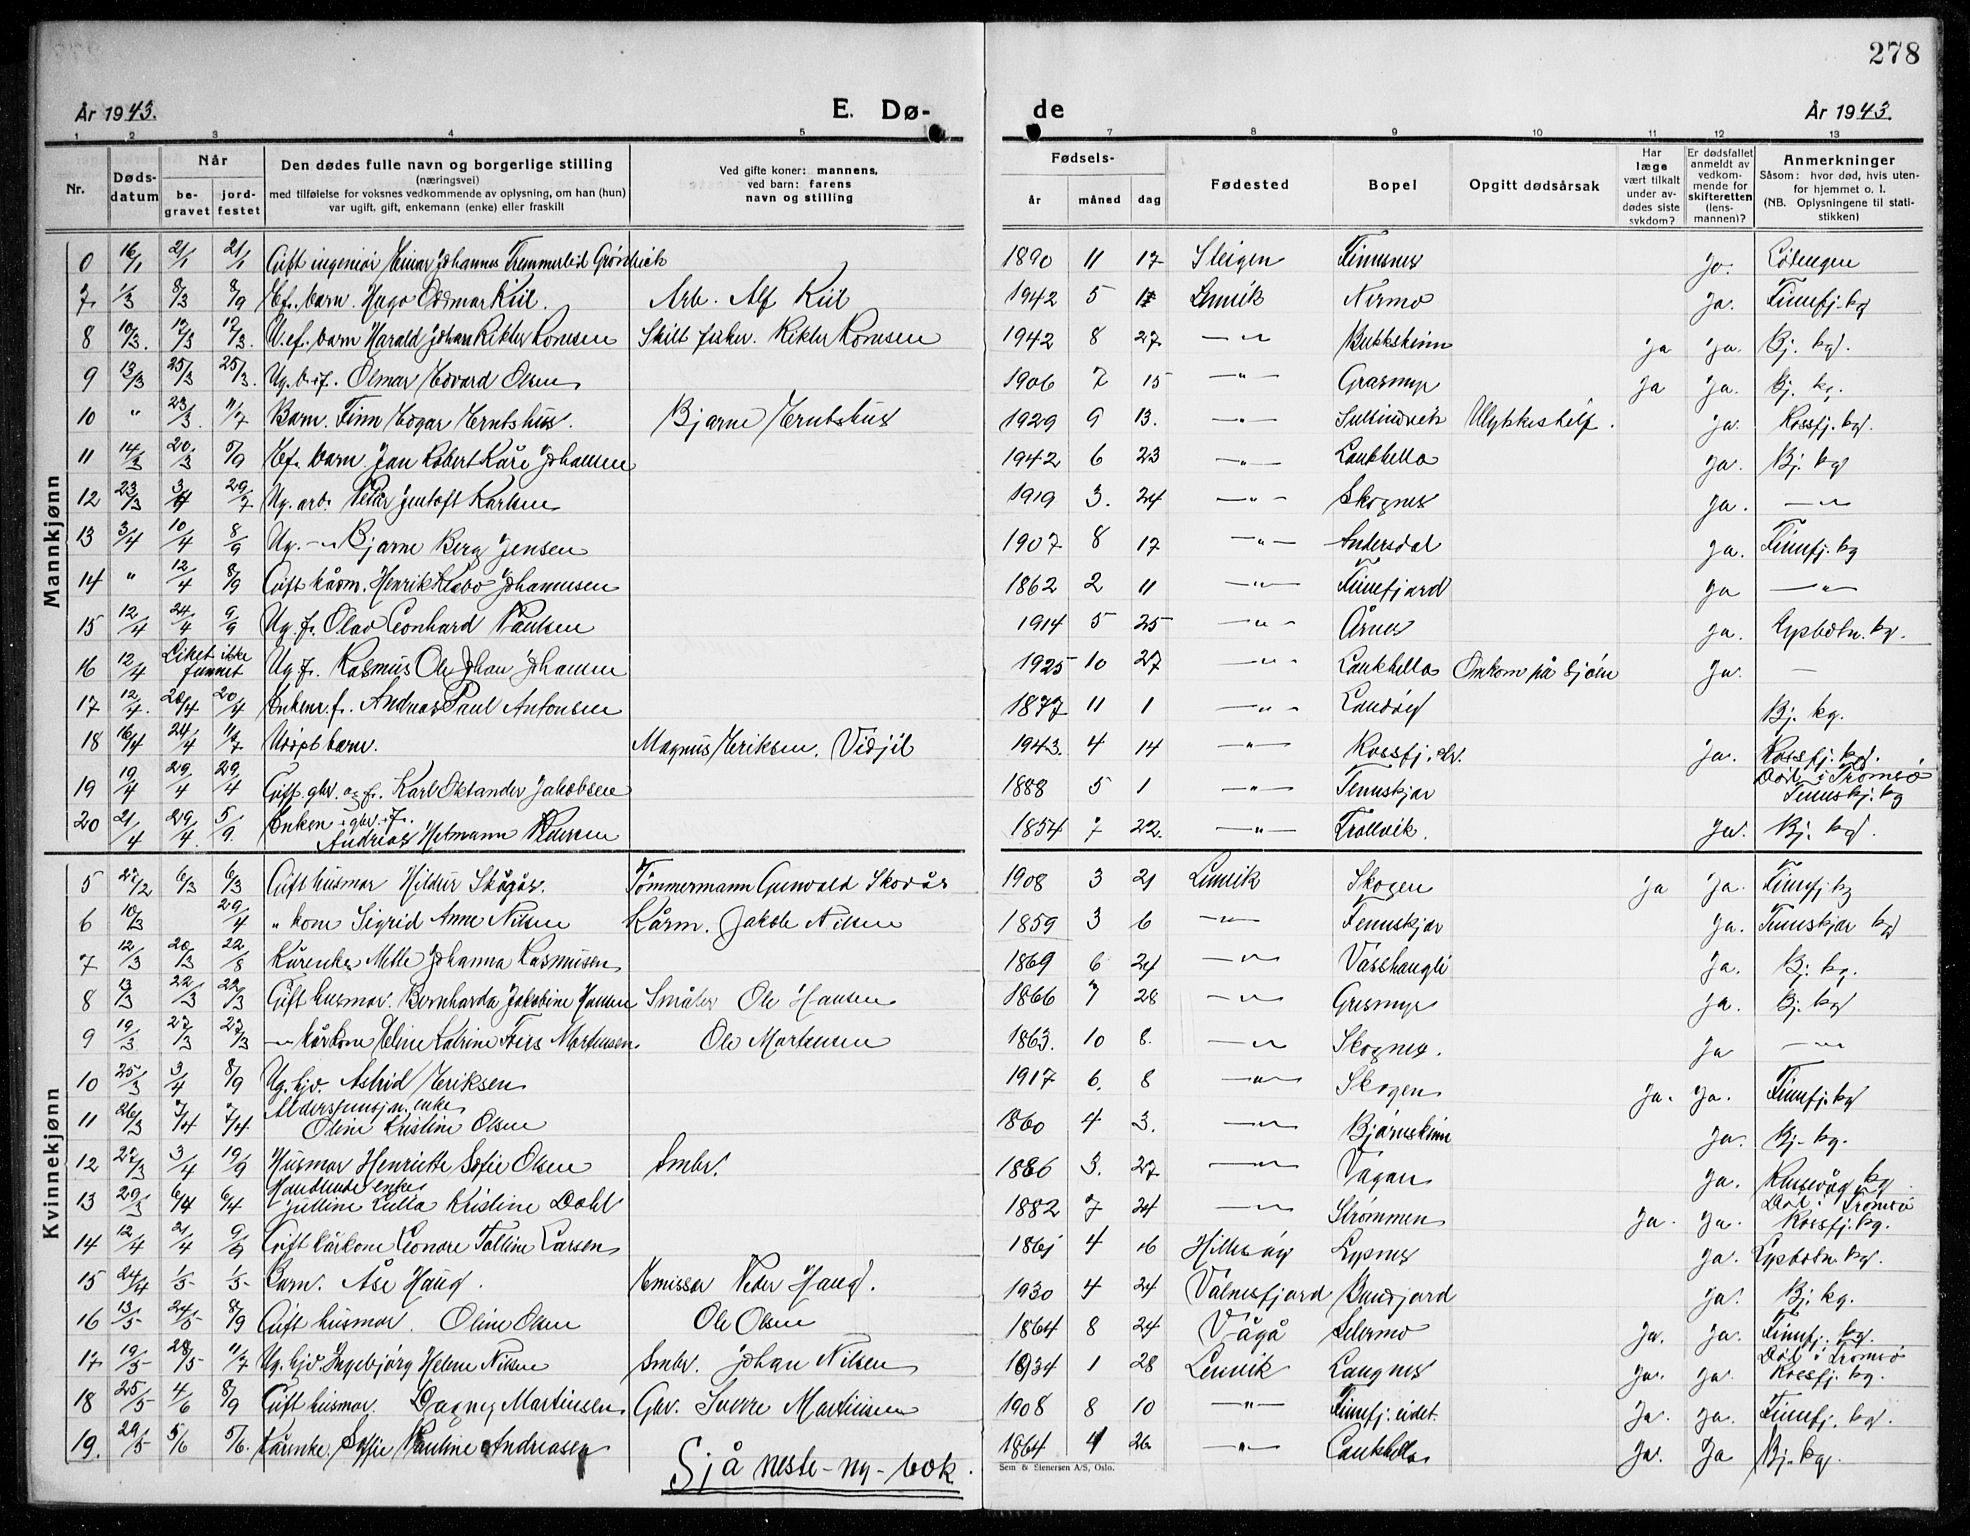 278
År 1943.
E. Dø-
de
År 1943.
1 2 3 4 5 7 8 9 10 11 12 13
Nr.
Døds-
datum
Når
be-
gravet
jord-
festet
Den dødes fulle navn og borgerlige stilling
(næringsvei)
med tilføielse for voksnes vedkommende av oplysning, om han (hun)
var ugift, gift, enkemann (enke) eller fraskilt
Ved gifte koner: mannens,
ved barn: farens
navn og stilling
Fødsels-
år måned dag
Fødested
Bopel
Opgitt dødsårsak
Har
læge
vært tilkalt
under av-
dødes siste
sykdom?
Er dødsfallet
anmeldt av
vedkom-
mende for
skifteretten
(lens-
mannen)?
Anmerkninger
Såsom: hvor død, hvis uten-
for hjemmet o. l.
(NB. Oplysningene til stati-
stikken)
Mannkjønn
0 16/1 21/1 21/1 Gift ingeniør Einar Johannes Tremmerlid 1890 11 17 Steigen Finnsnes Ja. Lødingen
7 1/3 8/3 8/9 Ef. barn. Hugo Oddmar Kiil. Arb. Alf Kiil 1942 5 Lenvik Nermo Ja. Finnfj. kg
8 10/3. 17/3 17/3. U.ef. barn Harald Johan Rikter Konesen Skilt fisker. Rikter Konesen 1942 8 27 —"— Bukkskinn Ja Ja. Bj. kg.
9 13/3 25/3 25/3. Ug. Olmar Edvard Olsen 1906 7 15 —"— Grasmyr Ja Ja. Bj. kg.
10 " 23/3. 11/7 Barn. Finn Edgar Erntshus. Bjarne Erntshus 1929 9 13. —"— Sultindvik Ulykkestilf. Ja. Rossfj. kg.
11 14/3 20/3 5/9 Ef. barn Jan Robert Kåre Johansen 1942 6 23 —"— Laukhella Ja. Bj. kg
12 23/3 3/4 29/7 Ug. arb. Peder Jentoft Karlsen 1919 3. 24 —"— Skognes Ja. —"—
13 3/4 10/4 8/9 Ug. —"— Bjarne Berg Jensen 1907 8 17 —"— Andersdal Ja. Finnfj. kg
14 " 12/4 8/9 Gift kårm. Henrik Klabo Johannesen 1862 2 11 —"— Finnfjord Ja —"—
15 12/4 24/4 9/9 Ug. f. Olav Leonhard Paulsen 1914 5 25 —"— Årnes Ja. Lysbotn. kg.
16 12/4 Liket ikke funnet Ug. f. Rasmus Ole Johan Johansen 1925 10 27 —"— Laukhella Omkom på sjøen Ja. —
17 12/4. 20/4 20/4 Enkem. f. Andreas Paul Antonsen 1877 11 1 —"— Bj. kg.
18 16/4 24/4 11/7 Udøpt barn. Magnus Eriksen, Vidjil 1943. 4 14 —"— Rossfj. Ja. Rossfj. kg.
19 19/4 29/4 29/4 Gift. gbr. og f. Karl Oktander Jakobsen 1888 5 1 —"— Tennskjær Død i Tromsø Tennskj. kg
20 21/4 29/4. 5/9. Enkem. gbr. f. Andreas Hetmann Pedersen 1854 7 22. —"— Trollvik. Ja. Bj. kg.
Kvinnekjønn
5 27/2 6/3 6/3 Gift husmor Hildur Skogås. Tømmermann Gunvald Skogås 1908 3 21 Lenvik Skogen Ja Ja. Finnfj. kg
6 10/3 29/4 " kone Sigrid Anne Nilsen Kårm. Jakob Nilsen 1859 3 6 —"— Tennskjær Ja. Tennskjær kg
7 12/3 20/3 22/8 Kårenke Mette Johanna Rasmusen 1869 6 24 —"— Vasshaugli Ja. Bj. kg.
8 13/3 22/3 22/3 Gift husmor. Bernharda Jakobine Hansen Småbr Ole Hansen 1866 7 28 —"— Grasmyr Ja. Bj. kg
9 19/3 27/3 27/3 —"— kårkone Eline Katrine Friis Martensen. Ole Martensen 1863. 10 8. —"— Skognes. Ja —"—
10 25/3 3/4 8/9 Ug. hjv. Astrid Eriksen 1917 6. 8 —"— Skogen Ja. Ja. Finnfj. kg
11 26/3 7/4 7/4 Alderspensjon. enke Oline Kristine Olsen 1860 4 3. —"— Bjørnskinn Ja. Bj. kg.
12 27/3 3/4 19/9 Husmor Henriette Sofie Olsen Smbr. 1886 3. 27 —"— Vågan Ja. kg
13 29/3 6/4 6/4 Handlende enke Julline Lulla Kristine Dahl 1882 7 24 —"— Strømmen Ja. Ja. Død i Tromsø Rossfj. kg.
14 12/4 21/4 9/9 Gift kårkone Leonore Tolline Larsen 186 4 16 Hillesøy Lysnes Ja. Lysbotn. kg.
15 24/4 1/5 1/5 Barn. Åse Haug. Emissær Peder Haug. 1930 4 24 Valnesfjord Ja. Bj. kg.
16 13/5 24/5 8/9 Gift husmor. Oline Olsen Ole Olsen 1864 8 24 Vågå Selermo Ja. Ja. Finnfj. kg.
17 19/5 28/5 11/7 Ug. hjv. Ingebjørg Helene Nilsen Smbr. Johan Nilsen 1934 1 28 Lenvik Langnes Ja. Ja. Død i Tromsø Rossfj. kg.
18 25/5 4/6 8/9 Gift husmor. Dagny Martinsen Gbr. Sverre Martinsen 1908 8 10 —"— Finnfj. eidet Ja. Ja. Finnfj. kg.
19. 29/5 5/6 5/6. Kårenke Soffie Pauline Andreasen 1864 4 26 —"— Laukhella Ja. Ja Bj. kg.
Sjå neste - ny - bok.
Sem & Stenersen A/S, Oslo.